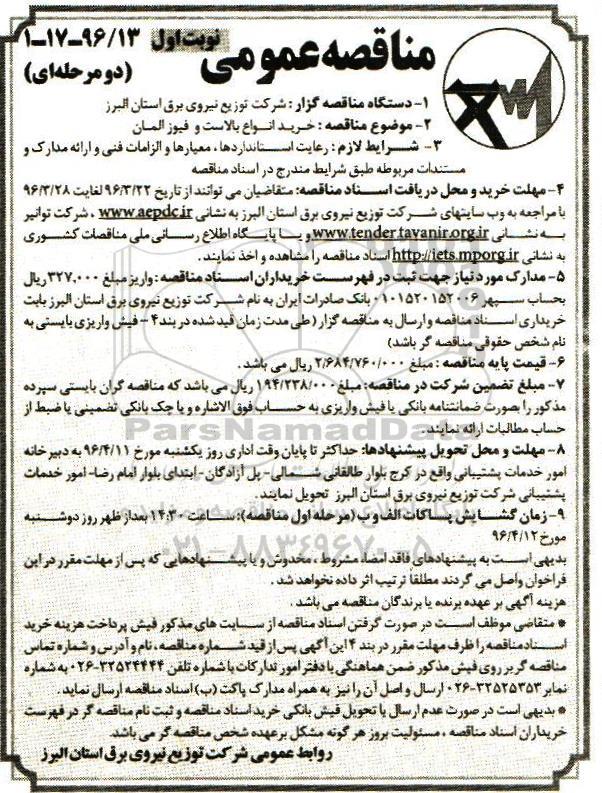 مناقصه عمومی نوبت اول ۱۳/۹۶-۱۷-۱
(دو مرحله‌ای)
۱- دستگاه مناقصه گزار : شرکت توزیع نیروی برق استان البرز
۲- موضوع مناقصه : خرید انواع بالاست و فیوز المان
۳- شرایط لازم : رعایت استانداردها ، معیارها و الزامات فنی و ارائه مدارک و
مستندات مربوطه طبق شرایط مندرج در اسناد مناقصه
۴- مهلت خرید و محل دریافت اسناد مناقصه: متقاضیان می توانند از تاریخ ۹۶/۳/۲۲ لغایت ۹۶/۳/۲۸
با مراجعه به وب سایتهای شرکت توزیع نیروی برق استان البرز به نشانی www.aepdc.ir ، شرکت توانیر
به نشانی www.tender.tavanir.org.ir و یا پایگاه اطلاع رسانی ملی مناقصات کشوری
به نشانی http://iets.mporg.ir اسناد مناقصه را مشاهده و اخذ نمایند .
۵- مدارک مورد نیاز جهت ثبت در فهرست خریداران اسناد مناقصه : واریز مبلغ ۳۲۷,۰۰۰ ریال
بحساب سپهر ۰۱۰۱۵۲۰۱۵۲۰۰۶ بانک صادرات ایران به نام شرکت توزیع نیروی برق استان البرز بابت
خریداری اسناد مناقصه و ارسال به مناقصه گزار (طی مدت زمان قید شده در بند ۴ - فیش واریزی بایستی به
نام شخص حقوقی مناقصه گر باشد)
۶- قیمت پایه مناقصه : مبلغ ۲/۶۸۴/۷۶۰/۰۰۰ ریال می باشد .
۷- مبلغ تضمین شرکت در مناقصه: مبلغ ۱۹۴/۲۳۸/۰۰۰ ریال می باشد که مناقصه گران بایستی سپرده
مذکور را بصورت ضمانتنامه بانکی یا فیش واریزی به حساب فوق الاشاره و یا چک بانکی تضمینی یا ضبط از
حساب مطالبات ارائه نمایند.
۸- مهلت و محل تحویل پیشنهادها: حداکثر تا پایان وقت اداری روز یکشنبه مورخ ۹۶/۴/۱۱ به دبیرخانه
امور خدمات پشتیبانی واقع در کرج بلوار طالقانی شمالی- پل آزادگان - ابتدای بلوار امام رضا- امور خدمات
پشتیبانی شرکت توزیع نیروی برق استان البرز تحویل نمایند .
۹- زمان گشایش پاکات الف و ب (مرحله اول مناقصه): ساعت ۱۴:۳۰ بعداز ظهر روز دوشنبه
مورخ ۹۶/۴/۱۲
بدیهی است به پیشنهادهای فاقد امضاء مشروط ، مخدوش و یا پیشنهادهایی که پس از مهلت مقرر در این
فراخوان واصل می گردند مطلقاً ترتیب اثر داده نخواهد شد .
هزینه آگهی بر عهده برنده یا برندگان مناقصه می باشد .
* متقاضی موظف است در صورت گرفتن اسناد مناقصه از سایت های مذکور فیش پرداخت هزینه خرید
اسناد مناقصه را ظرف مهلت مقرر در بند ۴ این آگهی پس از قید شماره مناقصه ، نام و آدرس و شماره تماس
مناقصه گر بر روی فیش مذکور ضمن هماهنگی با دفتر امور تدارکات با شماره تلفن ۳۲۵۲۴۴۴۴-۰۲۶ به شماره
نمابر ۳۲۵۲۵۳۵۳-۰۲۶ ارسال و اصل آن را نیز به همراه مدارک پاکت (ب) اسناد مناقصه ارسال نماید .
* بدیهی است در صورت عدم ارسال یا تحویل فیش بانکی خرید اسناد مناقصه و ثبت نام مناقصه گر در فهرست
خریداران اسناد مناقصه ، مسئولیت بروز هر گونه مشکل بر عهده شخص مناقصه گر می باشد.
روابط عمومی شرکت توزیع نیروی برق استان البرز
ParsNamadData
۰۲۱-۸۸۳۴۹۶۷۰-۵